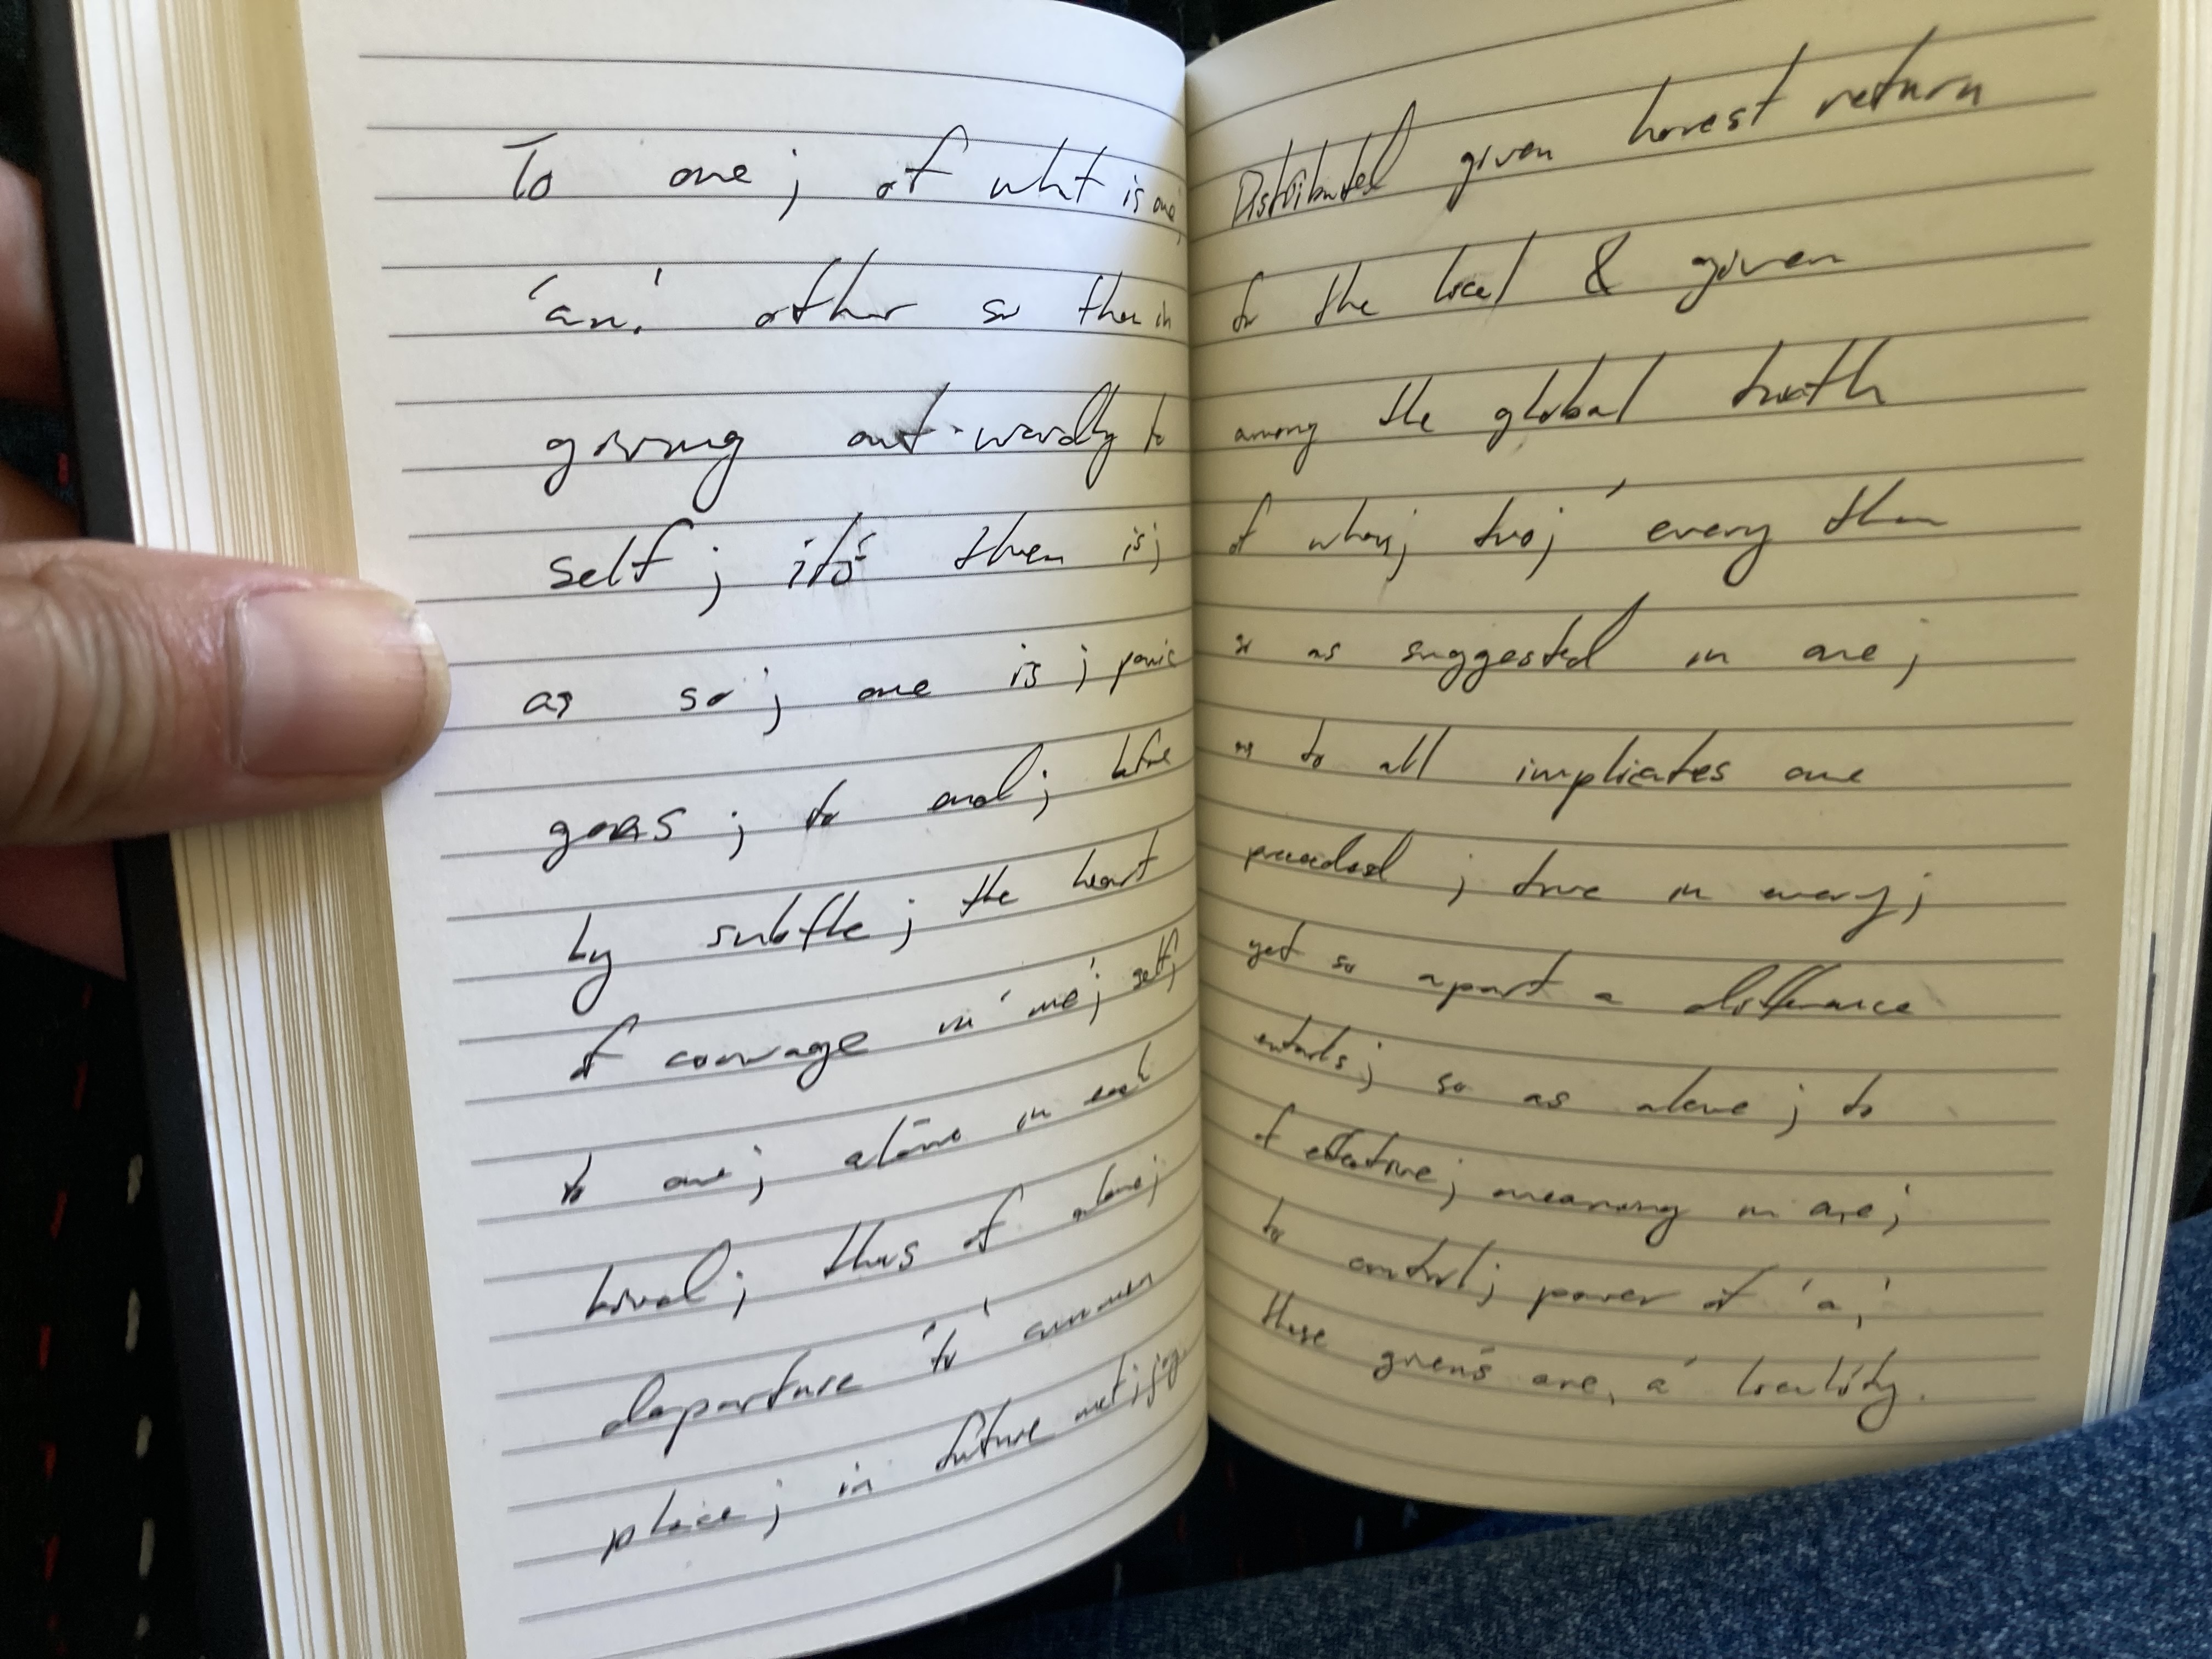 To one; of what is one,
'an.' other so then in
giving out-wardly to
self; it's then is;
as so'; one is; panic
goes; to end; before
by subtle; the heart
of courage in 'me'; self;
to one; alone in each
bival; thus of alone;
departure 'to' common
place; in future
Distributed given honest return
to the local & given
among the global truth
of whos; two;' every then
so as suggested in one;
as to all implicates one
preceded; true in every;
yet so apart a difference
entails; so as alone; to
of effective; meaning in one;
to control; power of 'a,'
these given's are, a' locality.